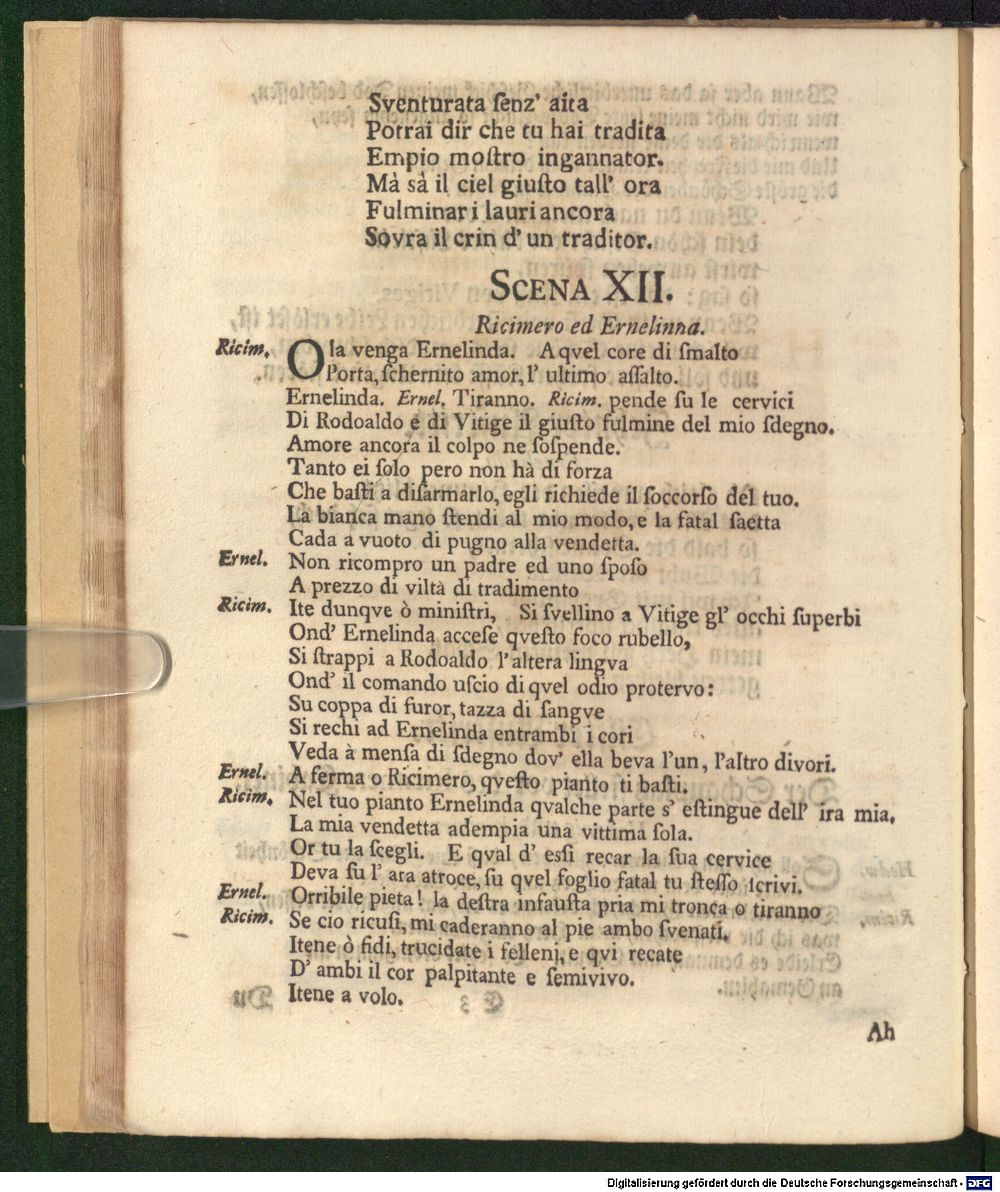 Sventurata ſenz' aita
Potrai dir che tu hai tradita
Empio moſtro ingannator.
Mà sà il ciel giuſto tall' ora
Fulminar i lauri ancora
Sovra il crin d' un traditor.
SCENA XII.
Ricimero ed Ernelinna.
Ricim. Ola venga Ernelinda. A qvel core di ſmalto
Porta, ſchernito amor, l' ultimo aſſalto.
Ernelinda. Ernel. Tiranno. Ricim. pende ſu le cervici
Di Rodoaldo e di Vitige il giuſto fulmine del mio ſdegno.
Amore ancora il colpo ne ſoſpende.
Tanto ei ſolo pero non hà di forza
Che baſti a diſarmarlo, egli richiede il ſoccorſo del tuo.
La bianca mano ſtendi al mio modo, e la fatal ſaetta
Cada a vuoto di pugno alla vendetta.
Ernel. Non ricompro un padre ed uno ſpoſo
A prezzo di viltà di tradimento
Ricim. Ite dunqve ò miniſtri, Si ſvellino a Vitige gl' occhi ſuperbi
Ond' Ernelinda acceſe qveſto foco rubello,
Si ſtrappi a Rodoaldo l'altera lingva
Ond' il comando uſcio di qvel odio protervo:
Su coppa di furor, tazza di ſangve
Si rechi ad Ernelinda entrambi i cori
Veda à menſa di ſdegno dov' ella beva l'un, l'altro divori.
Ernel. A ferma o Ricimero, qveſto pianto ti baſti.
Ricim. Nel tuo pianto Ernelinda qvalche parte s' eſtingue dell' ira mia,
La mia vendetta adempia una vittima ſola.
Or tu la ſcegli. E qval d' eſſi recar la ſua cervice
Deva ſu l' ara atroce, ſu qvel foglio fatal tu ſteſſo ſcrivi.
Ernel. Orribile pieta! la deſtra infauſta pria mi tronca o tiranno
Ricim. Se cio ricuſi, mi caderanno al pie ambo ſvenati,
Itene ò fidi, trucidate i felleni, e qvi recate
D' ambi il cor palpitante e ſemivivo.
Itene a volo.
Ah
Digitalisierung gefördert durch die Deutsche Forschungsgemeinschaft - DFG